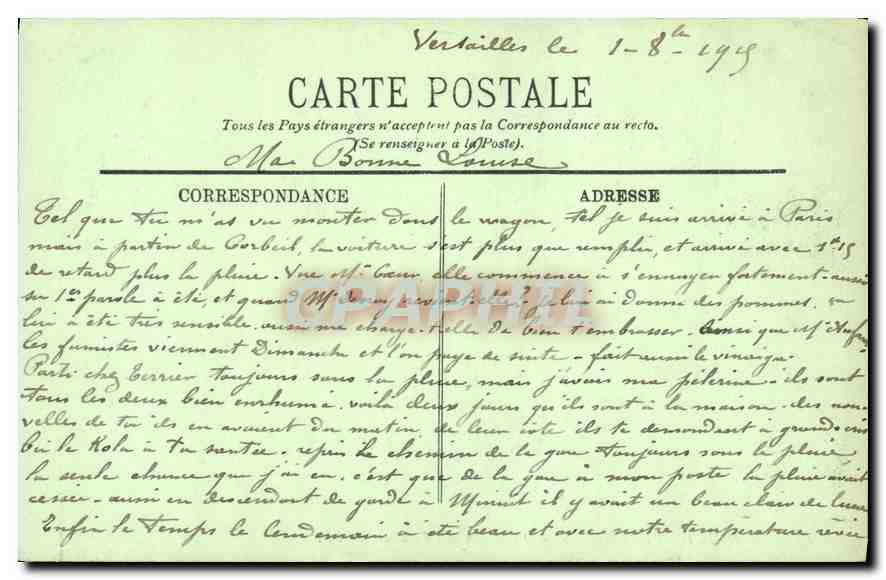 Versailles le 1-8bre-1915
CARTE POSTALE
Tous les Pays étrangers n'acceptent pas la Correspondance au recto.
(Se renseigner à la Poste).
Ma Bonne Louise
CORRESPONDANCE ADRESSE
Tel que tu m'as vu monter dans le wagon, tel je suis arrivé à Paris
mais à partir de Corbeil, la voiture s'est plus que remplie, et arrivé avec 1h 15
de retard plus la pluie. Vue Me Cœur, elle commence à s'ennuyer fortement aussi
sa 1ere parole à été, et quand Me devien revient elle? Je lui ai donné des pommes,
lui à été très sensible aussi me charge-t-elle de bien t'embrasser. ainsi que Me
les fumistes viennent Dimanche et l'on paye de suite - fait aussi le vinaigre.
Parti chez Terrier toujours sous la pluie, mais j'avais ma pèlerine - ils sont
tous les deux bien enrhumé. voilà deux jours qu'ils sont à la maison. des nou-
velles de toi ils en avaient du matin, de leur côté ils te demandent à grands cris
bu le Kola à ta santée. repris le chemin de la gare toujours sous la pluie,
la seule chance que j'ai eu, c'est que de la gare à mon poste la pluie avait
cessée - aussi en descendant de garde à Minuit il y avait un beau clair de lune
Enfin le temps le lendemain à été beau et avec notre température rêvée
CPAPHIL